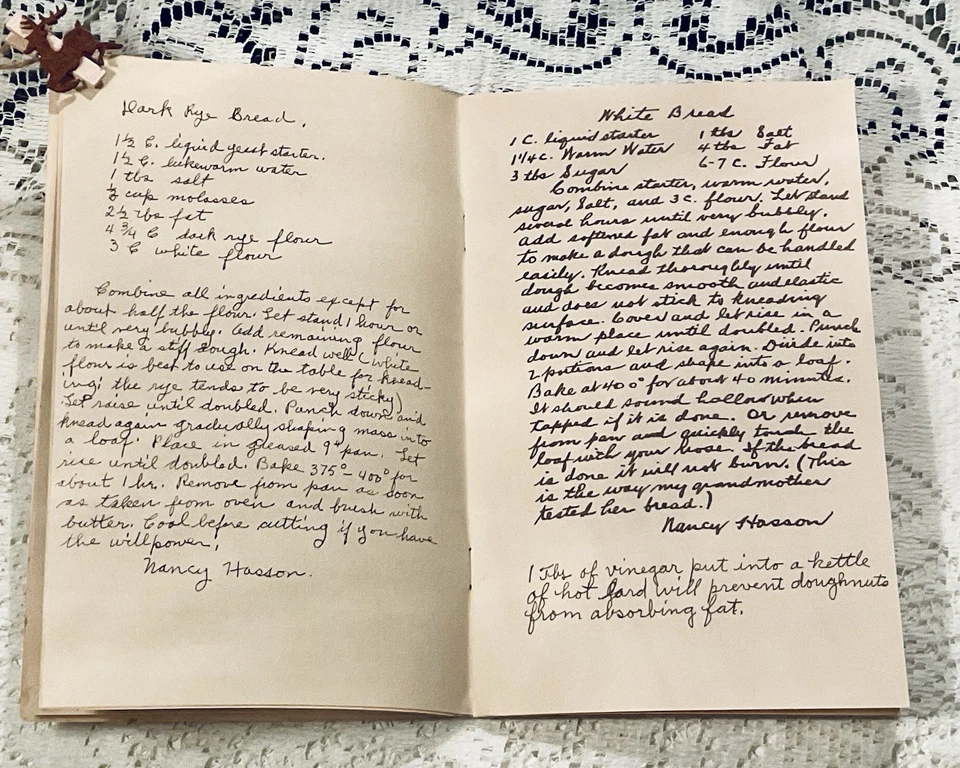 Dark Rye Bread.
1½ C. liquid yeast starter.
1½ C. lukewarm water
1 tbs salt
cup molasses
2½ tbs fat
4¾ C dark rye flour
3 C white flour
Combine all ingredients except for
about half the flour. Let stand 1 hour or
until very bubbly. Add remaining flour
to make a stiff dough. Knead well (White
flour is best to use on the table for knead-
ing; the rye tends to be very sticky)
Let raise until doubled. Punch down and
knead again gradually shaping mass into
a loaf. Place in greased 9" pan. Let
rise until doubled. Bake 375°-400° for
about 1 hr. Remove from pan as soon
as taken from oven and brush with
butter. Cool before cutting if you have
the willpower!
Nancy Hasson.
White Bread
1 C. liquid starter 1 tbs Salt
1¼ C. Warm Water 4 tbs Fat
3 tbs Sugar 6-7 C. Flour
Combine starter, warm water,
sugar, Salt, and 3 C. flour. Let stand
several hours until very bubbly.
Add softened fat and enough flour
to make a dough that can be handled
easily. Knead thoroughly until
dough becomes smooth and elastic
and does not stick to kneading
surface. Cover and let rise in a
warm place until doubled. Punch
down and let rise again. Divide into
2 portions and shape into a loaf.
Bake at 400° for about 40 minutes.
It should sound hollow when
tapped if it is done. Or remove
from pan and quickly touch the
loaf with your nose. If the bread
is done it will not burn. (This
is the way my grandmother
tested her bread.)
Nancy Hasson
1 Tbs of vinegar put into a kettle
of hot lard will prevent doughnuts
from absorbing fat.